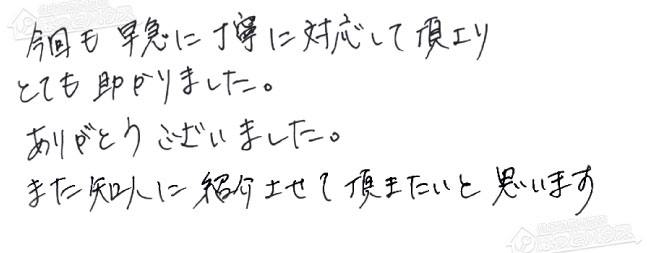 今回も早急に丁寧に対応して頂エリ
とても助かりました。
ありがとうございました。
また知人に紹介させて頂きたいと思います